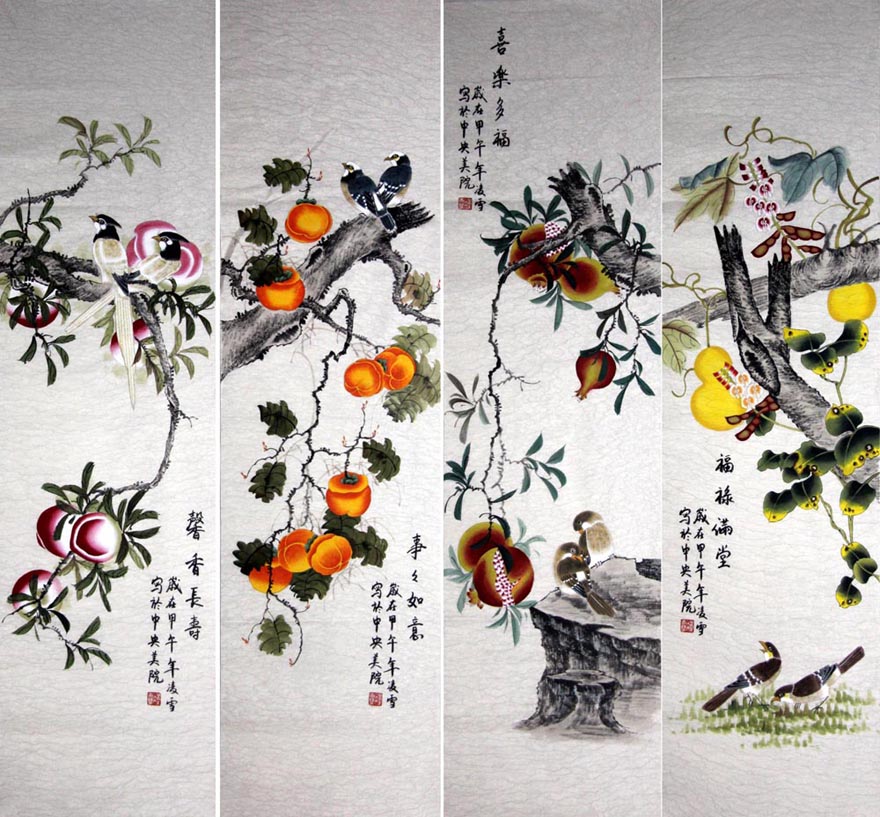 馨香長壽
歲在甲午年凌雪
写於中央美院
事々如意
歲在甲午年凌雪
写於中央美院
喜樂多福
歲在甲午年凌雪
写於中央美院
福祿滿堂
歲在甲午年凌雪
写於中央美院